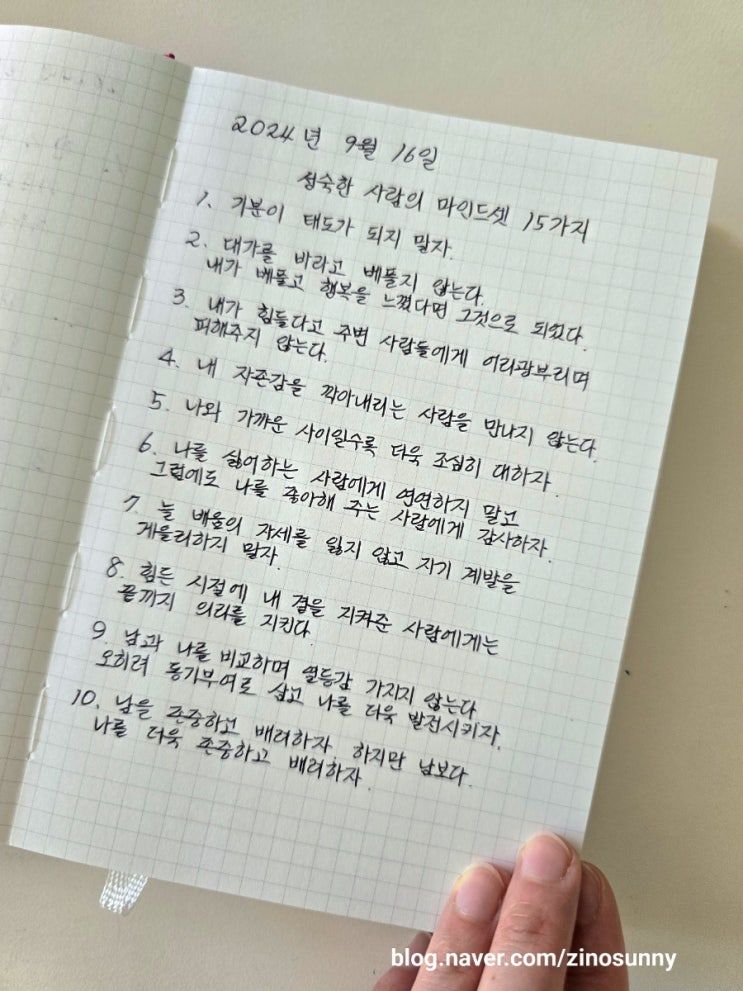 2024년 9월 16일
성숙한 사람의 마인드셋 15가지
1. 기분이 태도가 되지 말자.
2. 대가를 바라고 베풀지 않는다.
내가 베풀고 행복을 느꼈다면 그것으로 되었다.
3. 내가 힘들다고 주변 사람들에게 어리광부리며
피해주지 않는다.
4. 내 자존감을 깍아내리는 사람을 만나지 않는다.
5. 나와 가까운 사이일수록 더욱 조심히 대하자.
6. 나를 싫어하는 사람에게 연연하지 말고
그럼에도 나를 좋아해 주는 사람에게 감사하자.
7. 늘 배움의 자세를 잃지 않고 자기 계발을
게을리하지 말자.
8. 힘든 시절에 내 곁을 지켜준 사람에게는
끝까지 의리를 지킨다.
9. 남과 나를 비교하며 열등감 가지지 않는다.
오히려 동기부여로 삼고 나를 더욱 발전시키자.
10. 남을 존중하고 배려하자. 하지만 남보다.
나를 더욱 존중하고 배려하자.
blog.naver.com/zinosunny